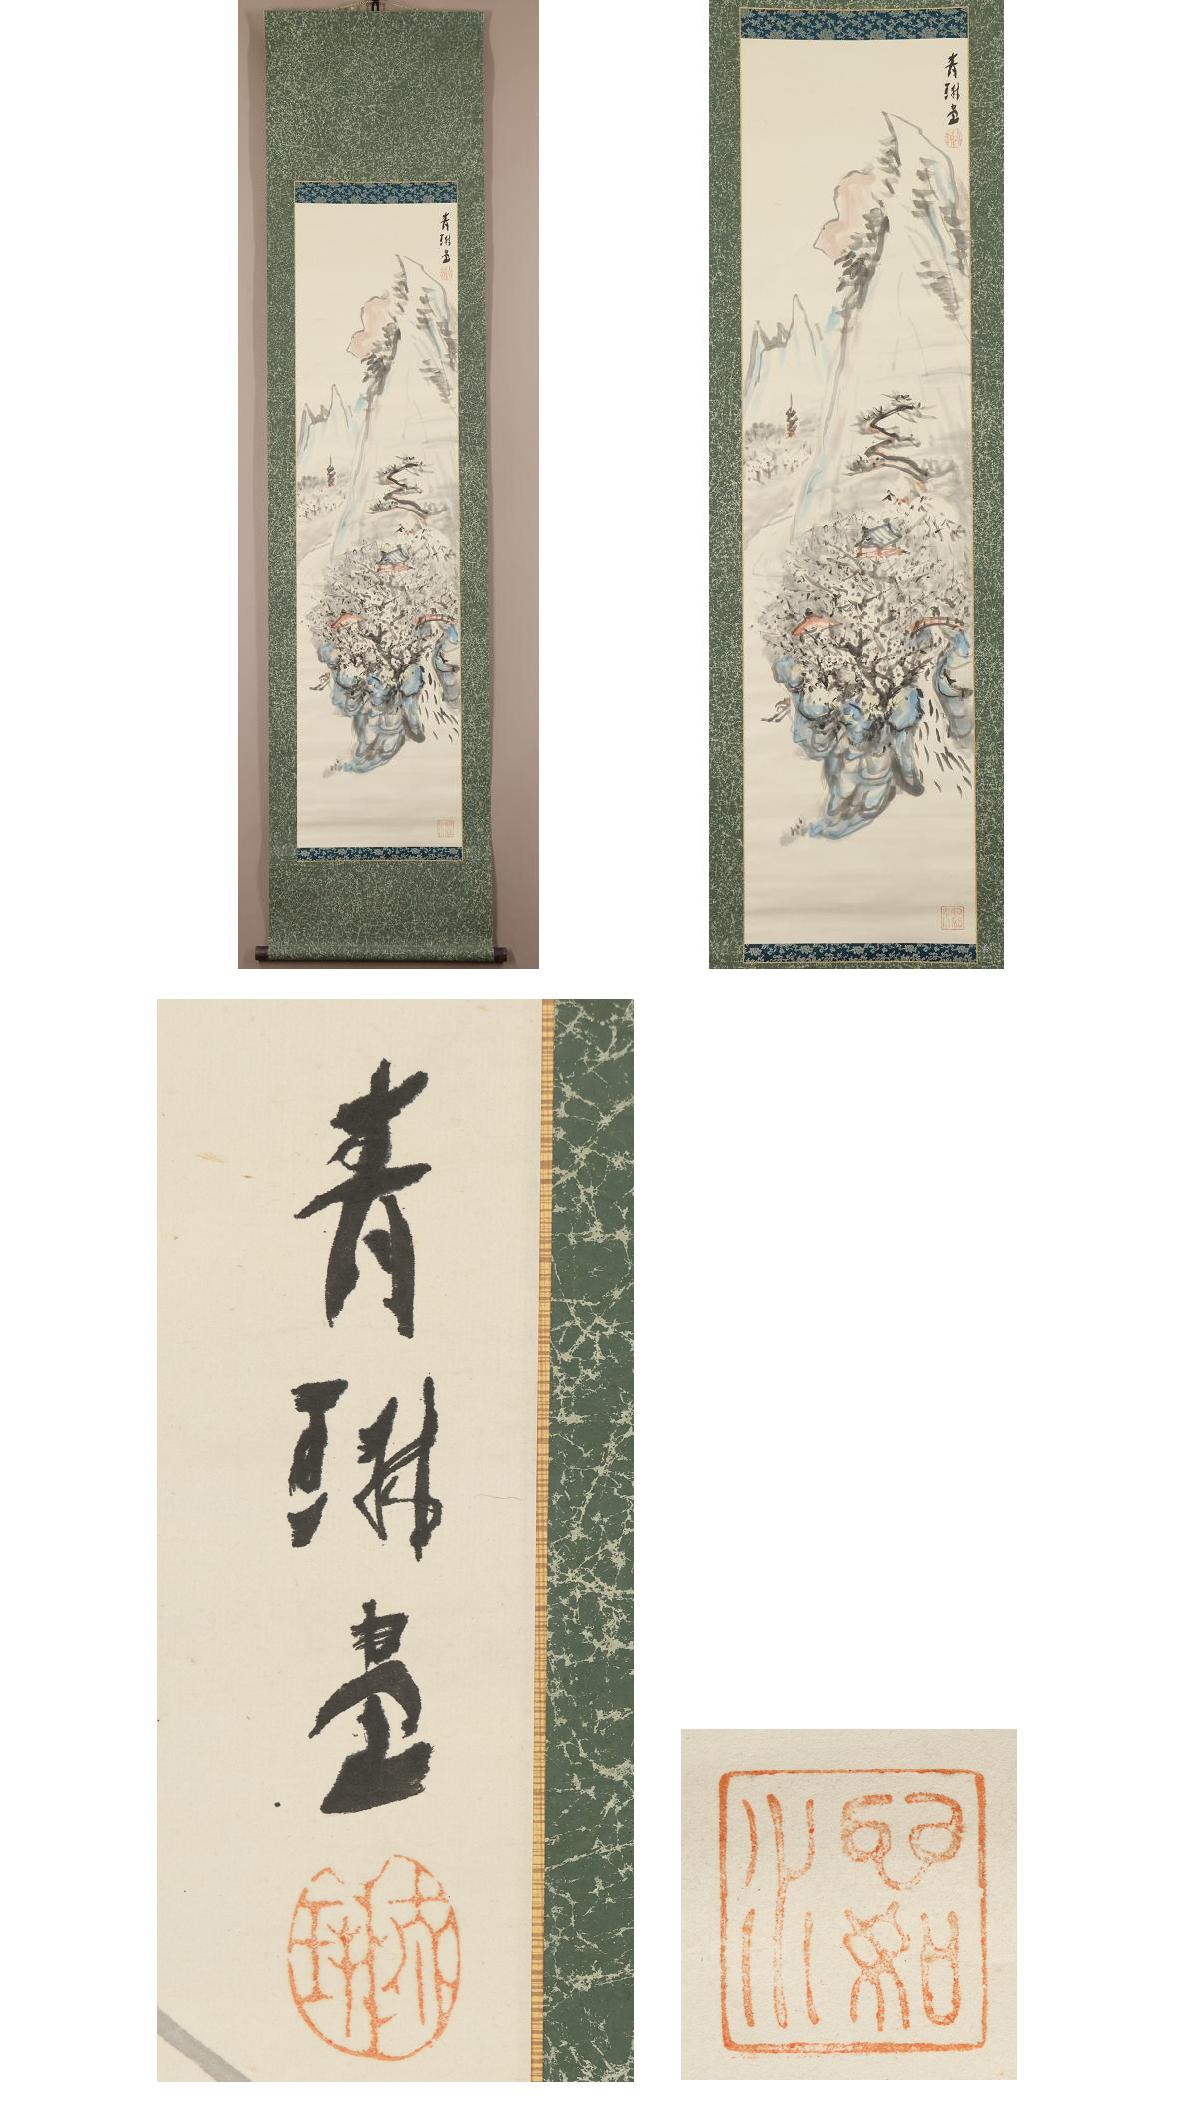 青琳畫
青琳畫
青琳畫
青琳